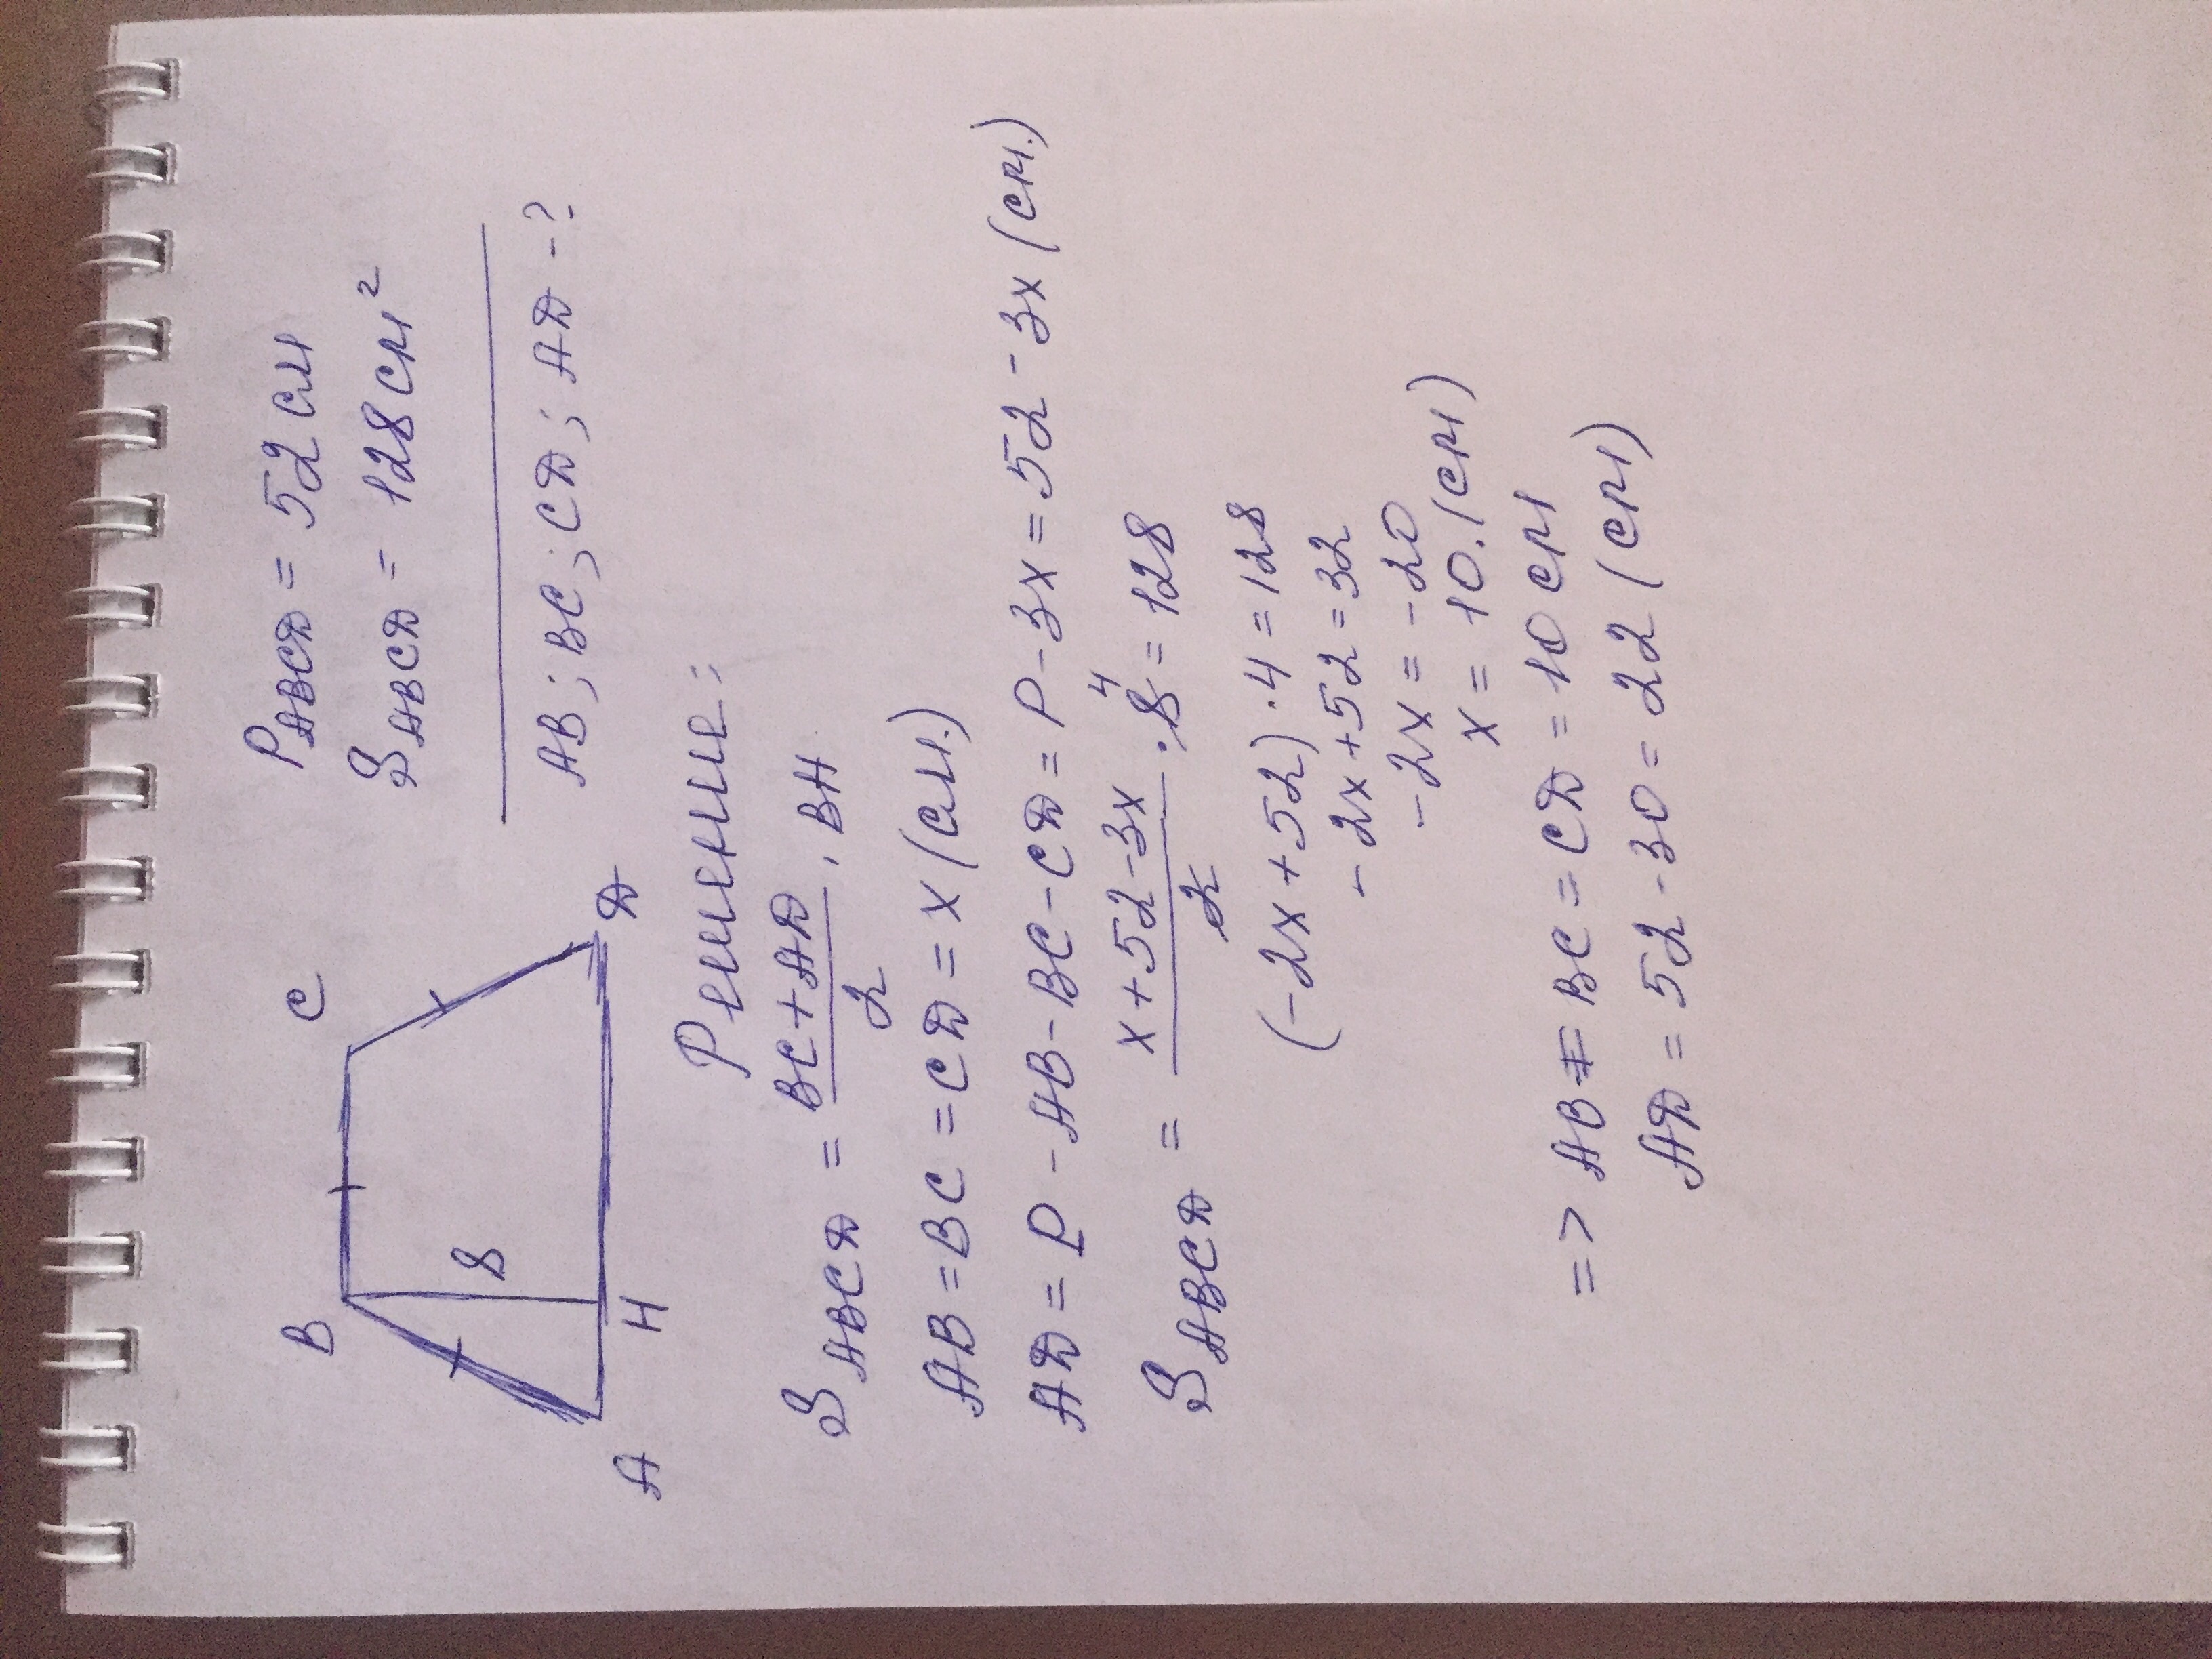 B C
8
A H D
P ABCD = 52 см
S ABCD = 128 см²
AB; BC; CD; AD - ?
Решение:
S ABCD = (BC + AD)/2 · BH
AB = BC = CD = x (см.)
AD = P - AB - BC - CD = P - 3x = 52 - 3x (см.)
S ABCD = (x + 52 - 3x)/2 · 8 4 = 128
(-2x + 52) · 4 = 128
-2x + 52 = 32
-2x = -20
x = 10. (см)
=> AB = BC = CD = 10 см
AD = 52 - 30 = 22 (см)